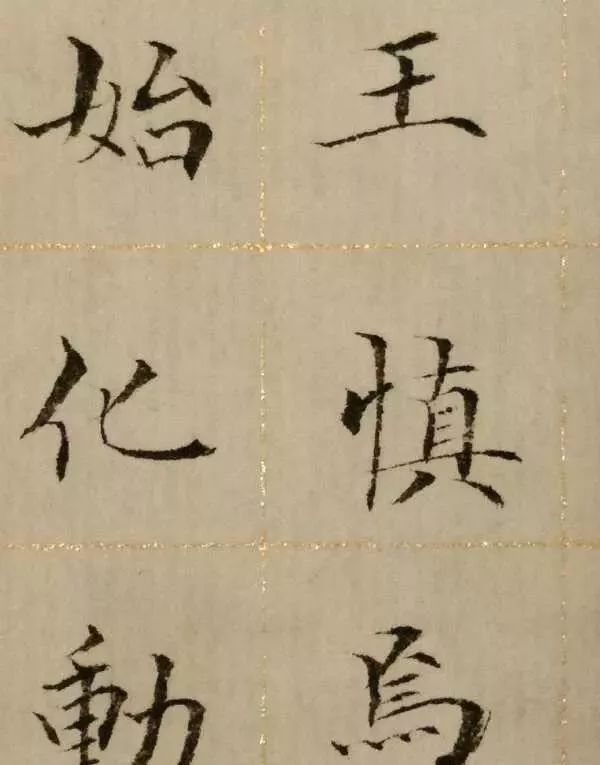 王慎焉
始化動